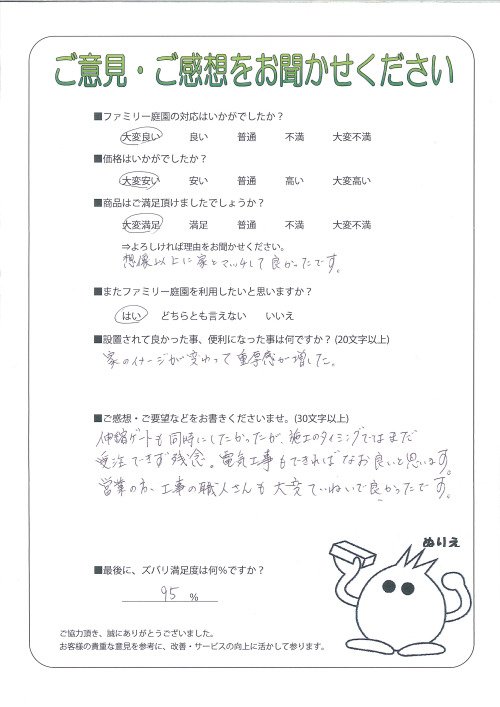 ご意見・ご感想をお聞かせください
■ファミリー庭園の対応はいかがでしたか？
大変良い 良い 普通 不満 大変不満
■価格はいかがでしたか？
大変安い 安い 普通 高い 大変高い
■商品はご満足頂けましたでしょうか？
大変満足 満足 普通 不満 大変不満
⇒よろしければ理由をお聞かせください。
想像以上に家とマッチして良かったです。
■またファミリー庭園を利用したいと思いますか？
はい どちらとも言えない いいえ
■設置されて良かった事、便利になった事は何ですか？(20文字以上)
家のイメージが変わって重厚感が増した。
■ご感想・ご要望などをお書きくださいませ。(30文字以上)
伸縮ゲートも同時にしたかったが、施工のタイミングではまだ
受注できず残念。電気工事もできればなお良いと思います。
営業の方、工事の職人さんも大変ていねいで良かったです。
ぬりえ
■最後に、ズバリ満足度は何%ですか？
95 %
ご協力頂き、誠にありがとうございました。
お客様の貴重な意見を参考に、改善・サービスの向上に活かして参ります。